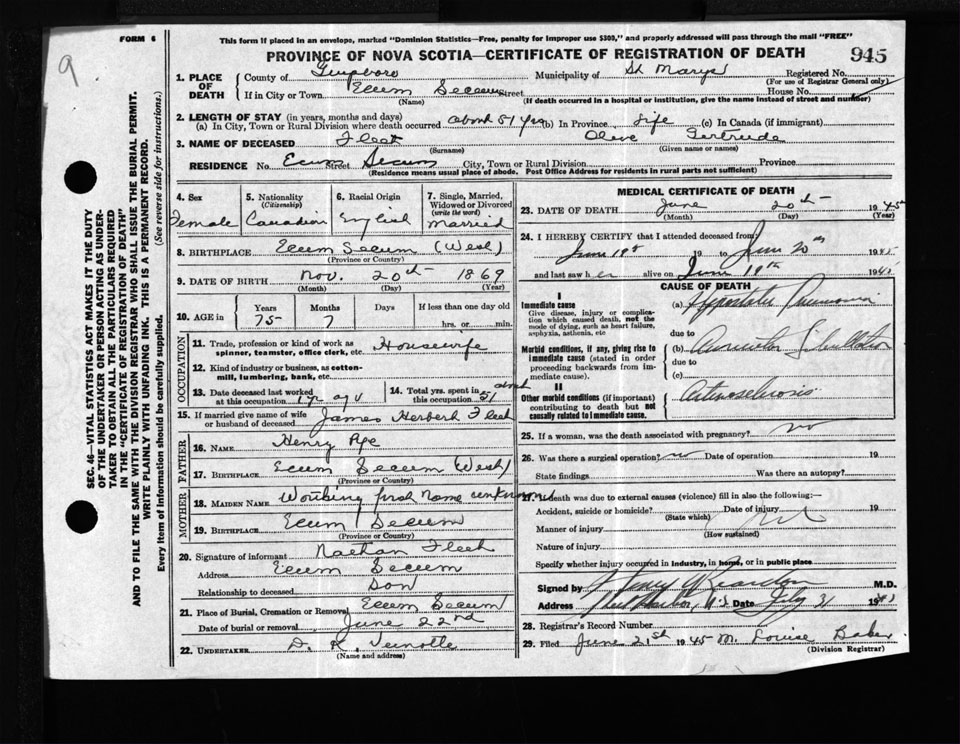 9
FORM 6
This form if placed in an envelope, marked "Dominion Statistics—Free, penalty for improper use $300," and properly addressed will pass through the mail "FREE"
PROVINCE OF NOVA SCOTIA—CERTIFICATE OF REGISTRATION OF DEATH
945
SEC. 46—VITAL STATISTICS ACT MAKES IT THE DUTY
OF THE UNDERTAKER OR PERSON ACTING AS UNDER-
TAKER TO OBTAIN ALL THE PARTICULARS REQUIRED
IN THE "CERTIFICATE OF REGISTRATION OF DEATH"
AND TO FILE THE SAME WITH THE DIVISION REGISTRAR WHO SHALL ISSUE THE BURIAL PERMIT.
WRITE PLAINLY WITH UNFADING INK. THIS IS A PERMANENT RECORD.
Every item of information should be carefully supplied. (See reverse side for instructions.)
1. PLACE OF DEATH
County of Guysboro Municipality of St Marys Registered No.
(For use of Registrar General only)
If in City or Town Ecum Secum Street House No.
(Name) (If death occurred in a hospital or institution, give the name instead of street and number)
2. LENGTH OF STAY (in years, months and days)
(a) In City, Town or Rural Division where death occurred about 51 yrs (b) In Province Life (c) In Canada (if immigrant)
3. NAME OF DECEASED Fleet Olive Gertrude
(Surname) (Given name or names)
RESIDENCE No. Ecum Street Secum City, Town or Rural Division Province
(Residence means usual place of abode. Post Office Address for residents in rural parts not sufficient)
4. Sex Female
5. Nationality (Citizenship) Canadian
6. Racial Origin English
7. Single, Married, Widowed or Divorced (write the word) Married
8. BIRTHPLACE Ecum Secum (West)
(Province or Country)
9. DATE OF BIRTH Nov. 20th 1869
(Month) (Day) (Year)
10. AGE in Years 75 Months 7 Days If less than one day old hrs. or min.
OCCUPATION
11. Trade, profession or kind of work as spinner, teamster, office clerk, etc. Housewife
12. Kind of industry or business, as cotton-mill, lumbering, bank, etc.
13. Date deceased last worked at this occupation 1 yr ago
14. Total yrs. spent in this occupation about 51
15. If married give name of wife or husband of deceased James Herbert Fleet
FATHER
16. NAME Henry Pye
17. BIRTHPLACE Ecum Secum (West)
MOTHER
18. MAIDEN NAME first name unknown
19. BIRTHPLACE Ecum Secum
(Province or Country)
20. Signature of informant Nathan Fleet
Address Ecum Secum
Relationship to deceased Son
21. Place of Burial, Cremation or Removal Ecum Secum
Date of burial or removal June 22nd
22. UNDERTAKER D. R.
(Name and address)
MEDICAL CERTIFICATE OF DEATH
23. DATE OF DEATH June 20th 1945
(Month) (Day) (Year)
24. I HEREBY CERTIFY that I attended deceased from
June 19th 19 to June 20th 1945
and last saw her alive on June 19th 1945
CAUSE OF DEATH
I
Immediate cause
Give disease, injury or complication which caused death, not the mode of dying, such as heart failure, asphyxia, asthenia, etc
(a) Hypostatic Pneumonia
due to
Morbid conditions, if any, giving rise to immediate cause (stated in order proceeding backwards from immediate cause)
(b) Auricular Fibrillation
due to
(c)
II
Other morbid conditions (if important) contributing to death but not causally related to immediate cause.
Arteriosclerosis
25. If a woman, was the death associated with pregnancy? no
26. Was there a surgical operation? no Date of operation 19
State findings Was there an autopsy?
27. If death was due to external causes (violence) fill in also the following:—
Accident, suicide or homicide? Date of injury 19
(State which)
Manner of injury
(How sustained)
Nature of injury
Specify whether injury occurred in industry, in home, or in public place
Signed by M.D.
Address Harbor, N.S. Date July 31 1945
28. Registrar's Record Number
29. Filed June 21st 1945 M. Louise Baker
(Division Registrar)